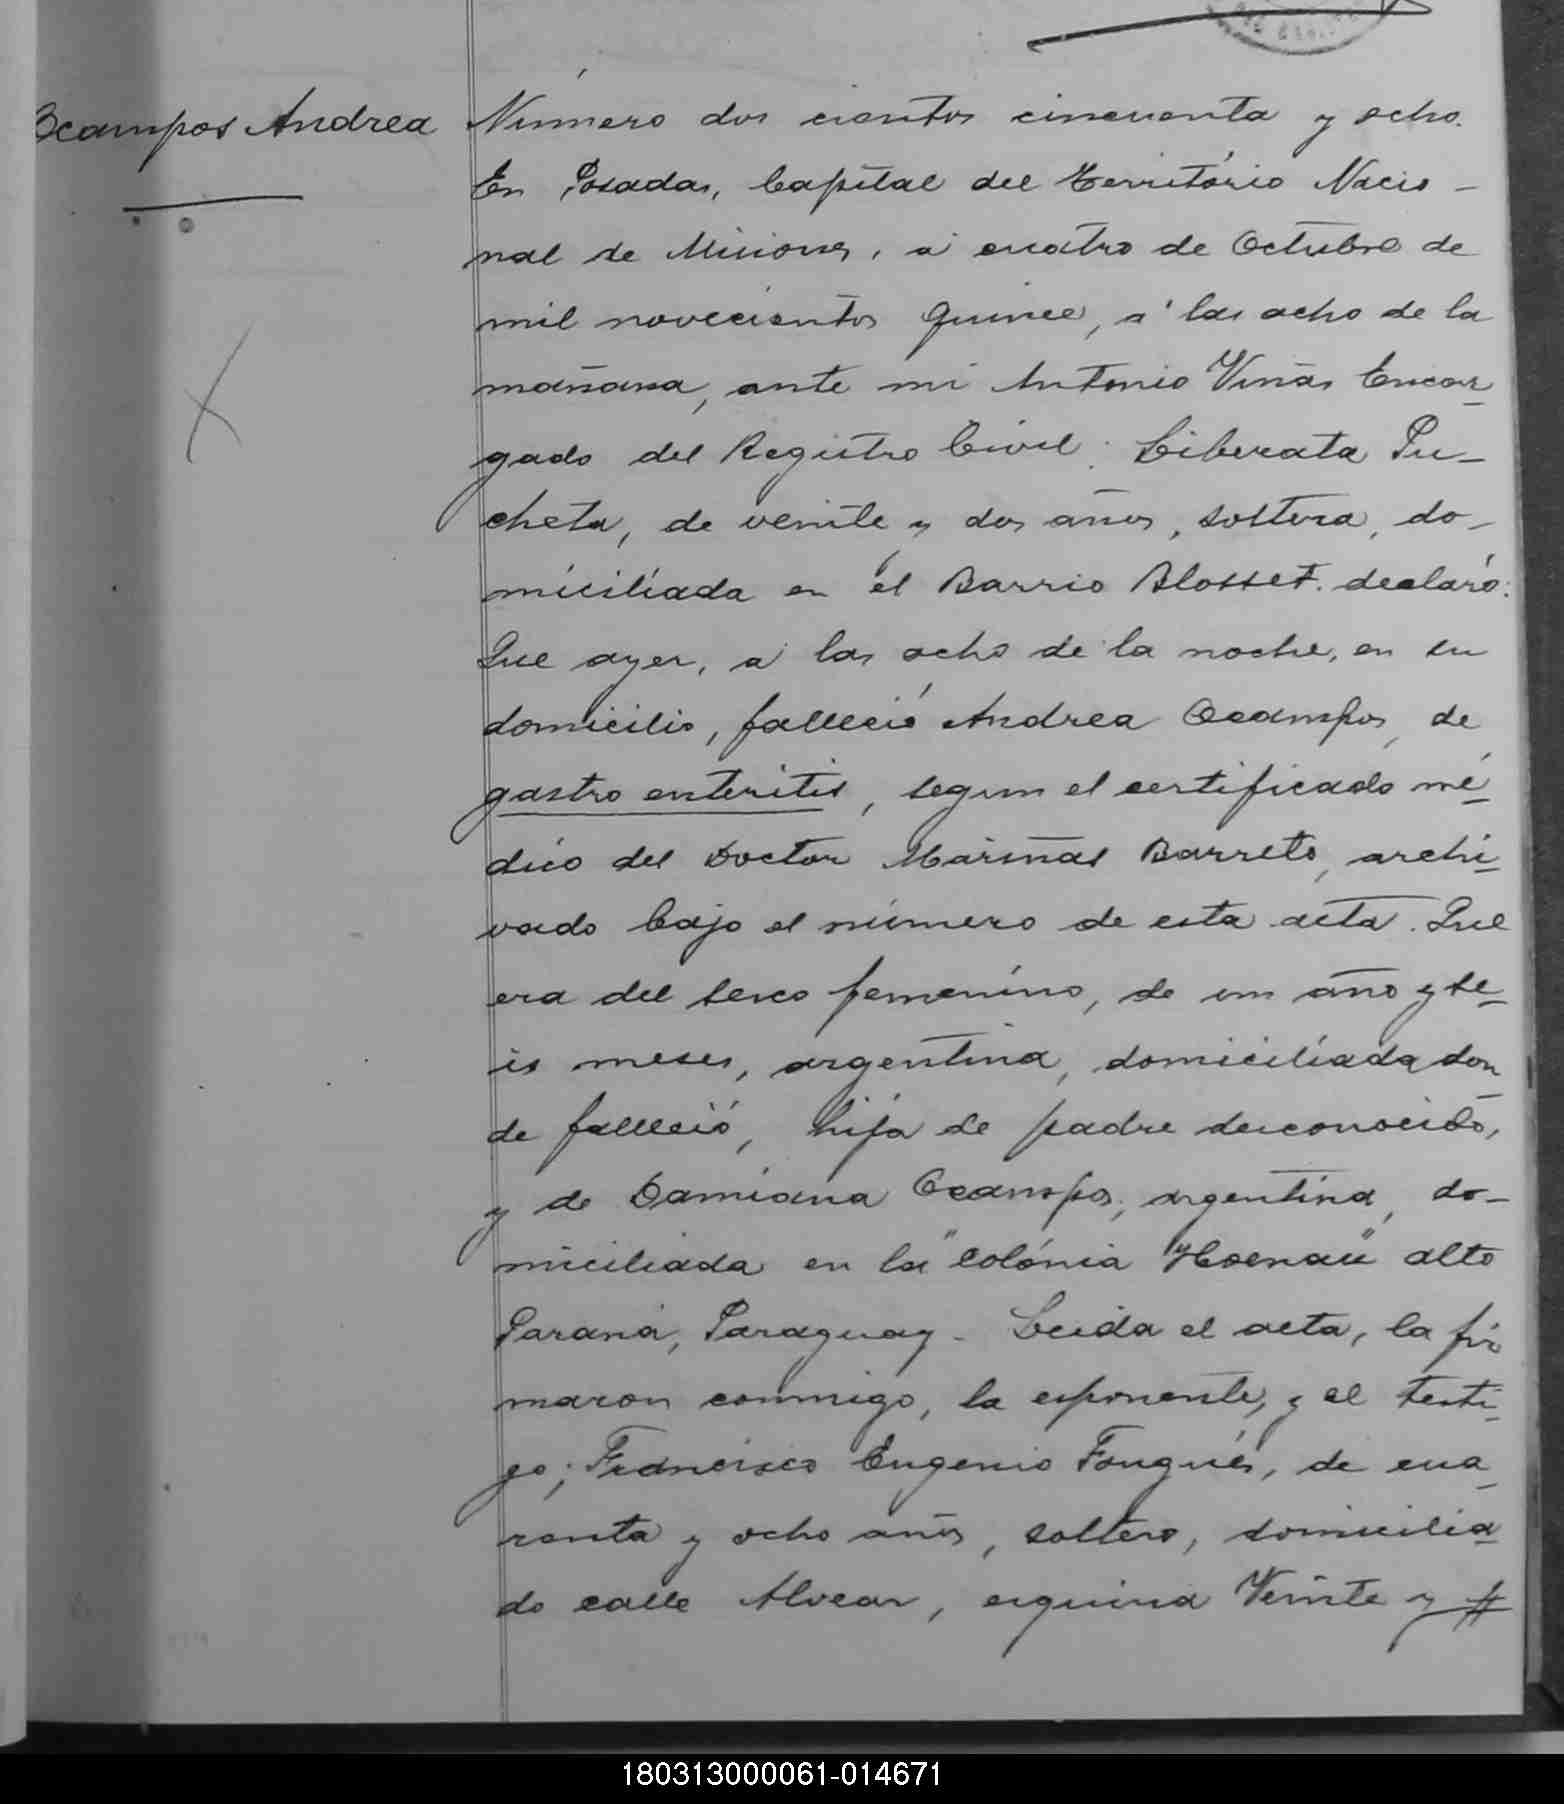 Ocampos Andrea
Número dos cientos cincuenta y ocho.
En Posadas, Capital del Território Nacio-
nal de Misiones, a cuatro de Octubre de
mil novecientos quince, a las ocho de la
mañana, ante mi Antonio Viñas Encar-
gado del Registro Civil: Liberata Pu-
cheta, de veinte y dos años, soltera, do-
miciliada en el Barrio Blosset. declaró:
Que ayer, a las ocho de la noche, en su
domicilio, falleció Andrea Ocampos, de
gastro enteritis, segun el certificado mé-
dico del Doctor Mariñas Barreto, archi-
vado bajo el número de esta acta. Que
era del sexo femenino, de un año y se-
is meses, argentina, domiciliada don-
de falleció, hija de padre desconocido,
y de Damiana Ocampos, argentina, do-
miciliada en la "Colónia Hoenau" alto
Paraná, Paraguay - Leida el acta, la fir
maron conmigo, la exponente, y el testi-
go; Francisco Eugenio Fougués, de cua-
renta y ocho años, soltero, domicilia-
do calle Alvear, esquina Veinte y #
180313000061-014671